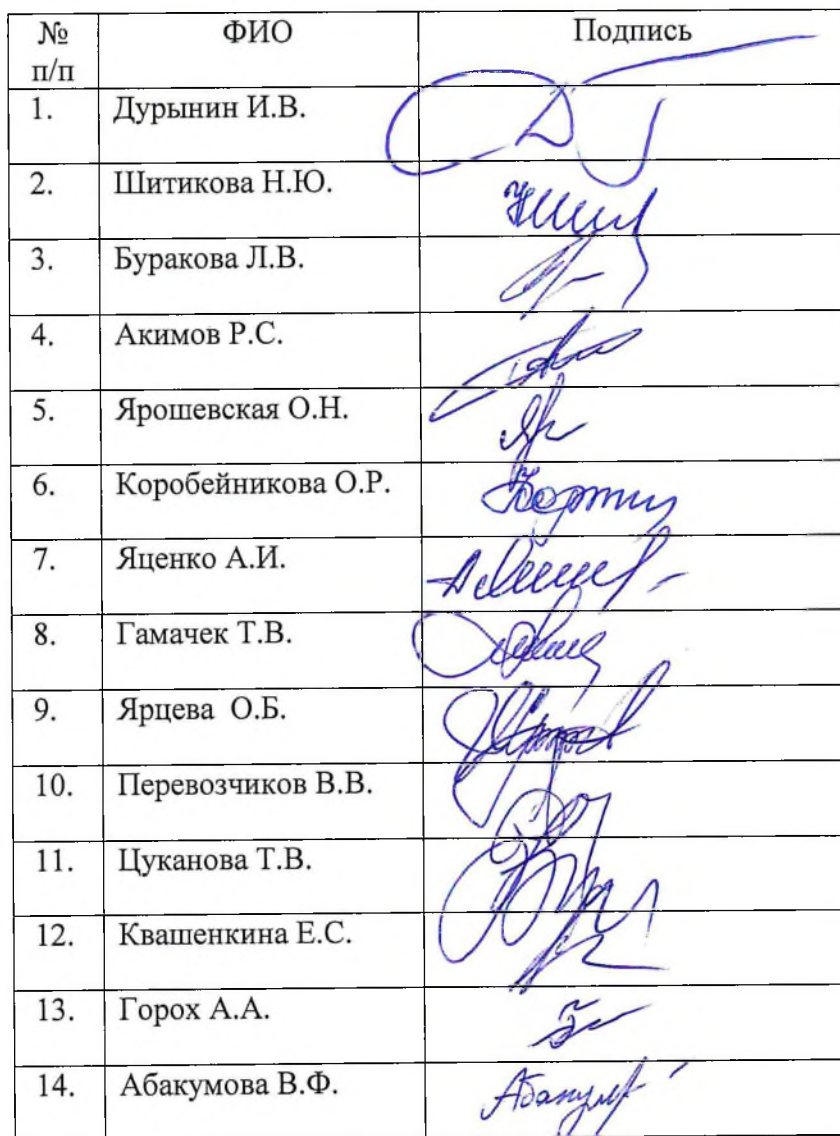 № п/п ФИО Подпись
1. Дурынин И.В.
2. Шитикова Н.Ю.
3. Буракова Л.В.
4. Акимов Р.С.
5. Ярошевская О.Н.
6. Коробейникова О.Р.
7. Яценко А.И.
8. Гамачек Т.В.
9. Ярцева О.Б.
10. Перевозчиков В.В.
11. Цуканова Т.В.
12. Квашенкина Е.С.
13. Горох А.А.
14. Абакумова В.Ф.